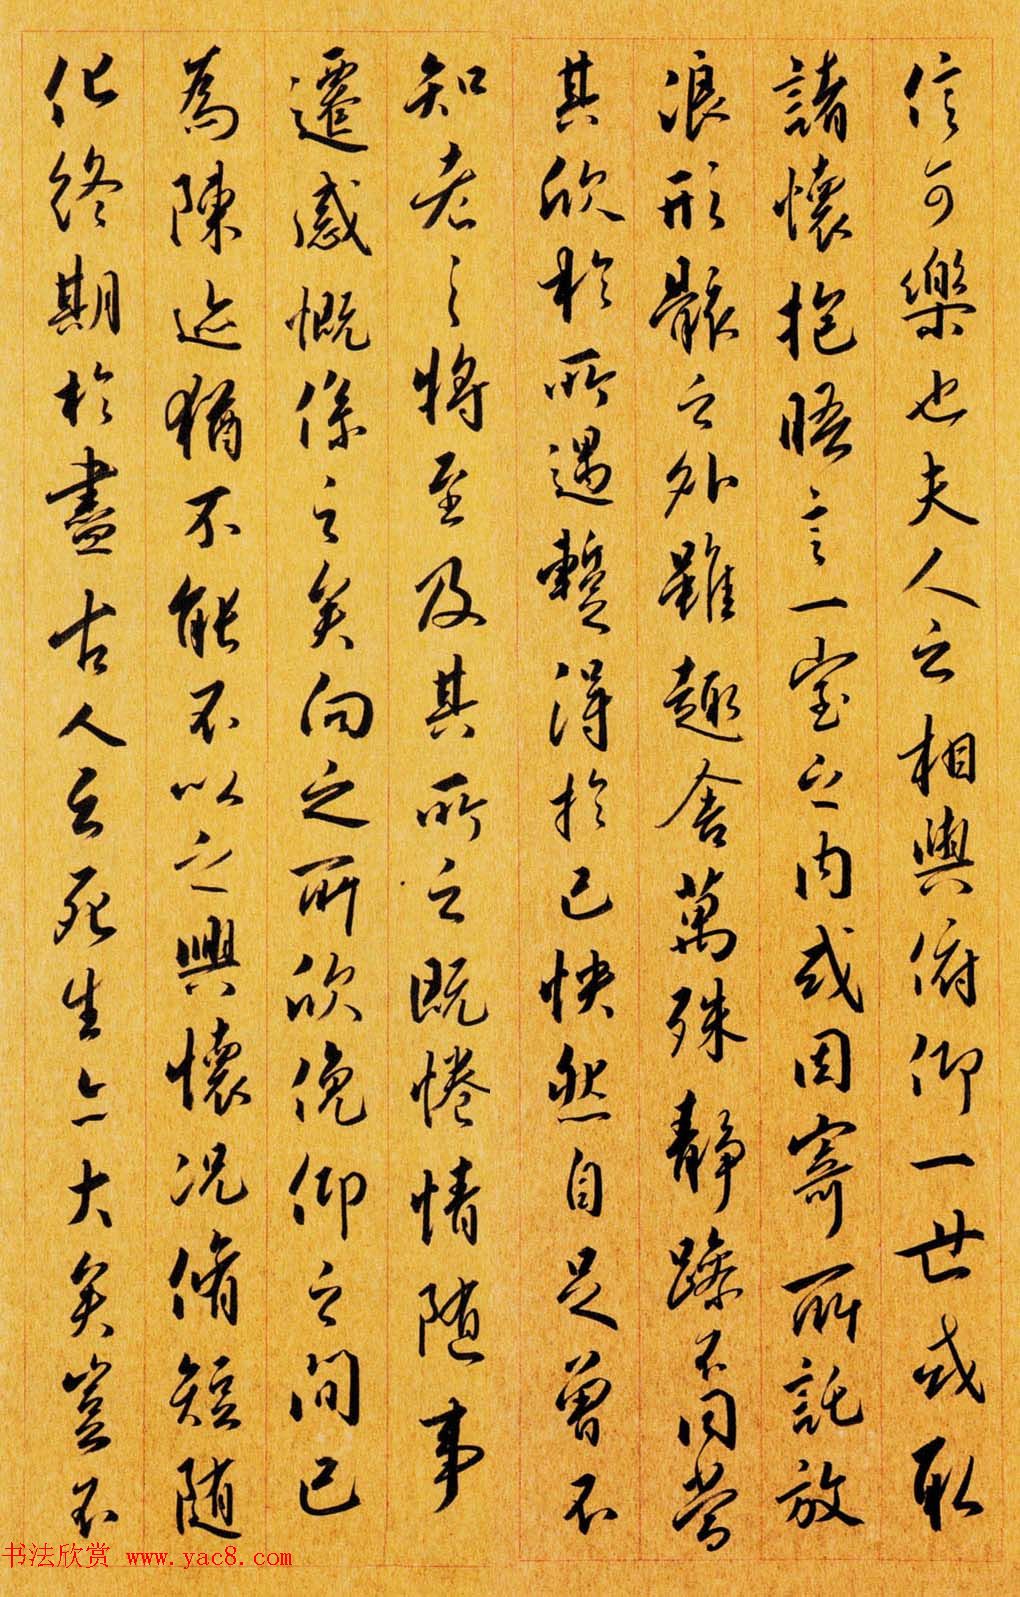 信可樂也夫人之相與俯仰一世或取
諸懷抱晤言一室之內或因寄所託放
浪形骸之外雖趣舍萬殊靜躁不同當
其欣於所遇暫得於己快然自足曾不
知老之將至及其所之既惓情隨事
遷感慨係之矣向之所欣俛仰之間已
為陳迹猶不能不以之興懷況脩短隨
化終期於盡古人云死生亦大矣豈不
书法欣赏 www.yac8.com